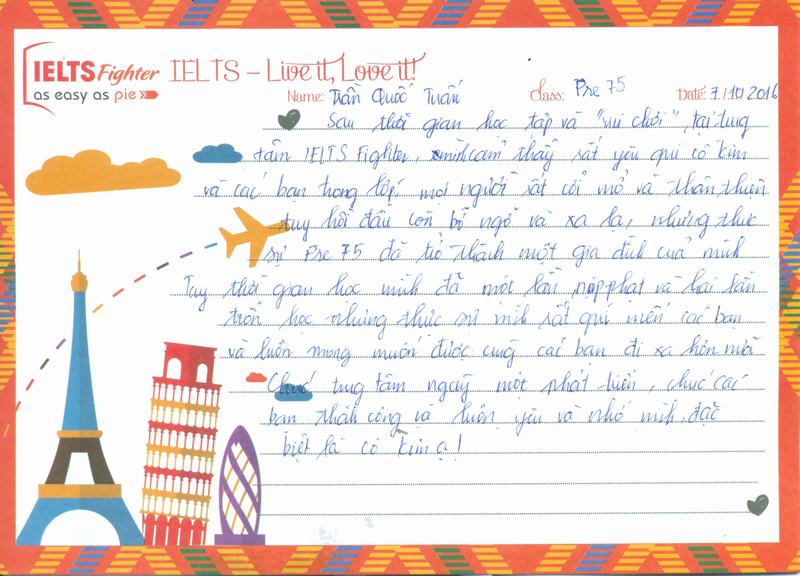 IELTS Fighter
as easy as pie
IELTS – Live it, Love it!
Name: Trần Quốc Tuấn Class: Pre 75 Date: 7/10/2016
Sau thời gian học tập và "vui chơi" tại tung
tâm IELTS Fighter, mình cảm thấy rất yêu quí cô Kim
và các bạn trong lớp, mọi người rất cởi mở và thân thiện
tuy hồi đầu còn bỡ ngỡ và xa lạ, nhưng thưc
sự Pre 75 đã trở thành một gia đình của mình
Tuy thời gian học mình đã một lần nộp phạt và hai lần
trốn học nhưng thực sự mình rất quí mến các bạn
và luôn mong muốn được cùng các bạn đi xa hơn nữa
Chúc tung tâm ngày một phát triển, chúc các
bạn thành công và luôn yêu và nhớ mình, đặc
biệt là cô Kim ạ!